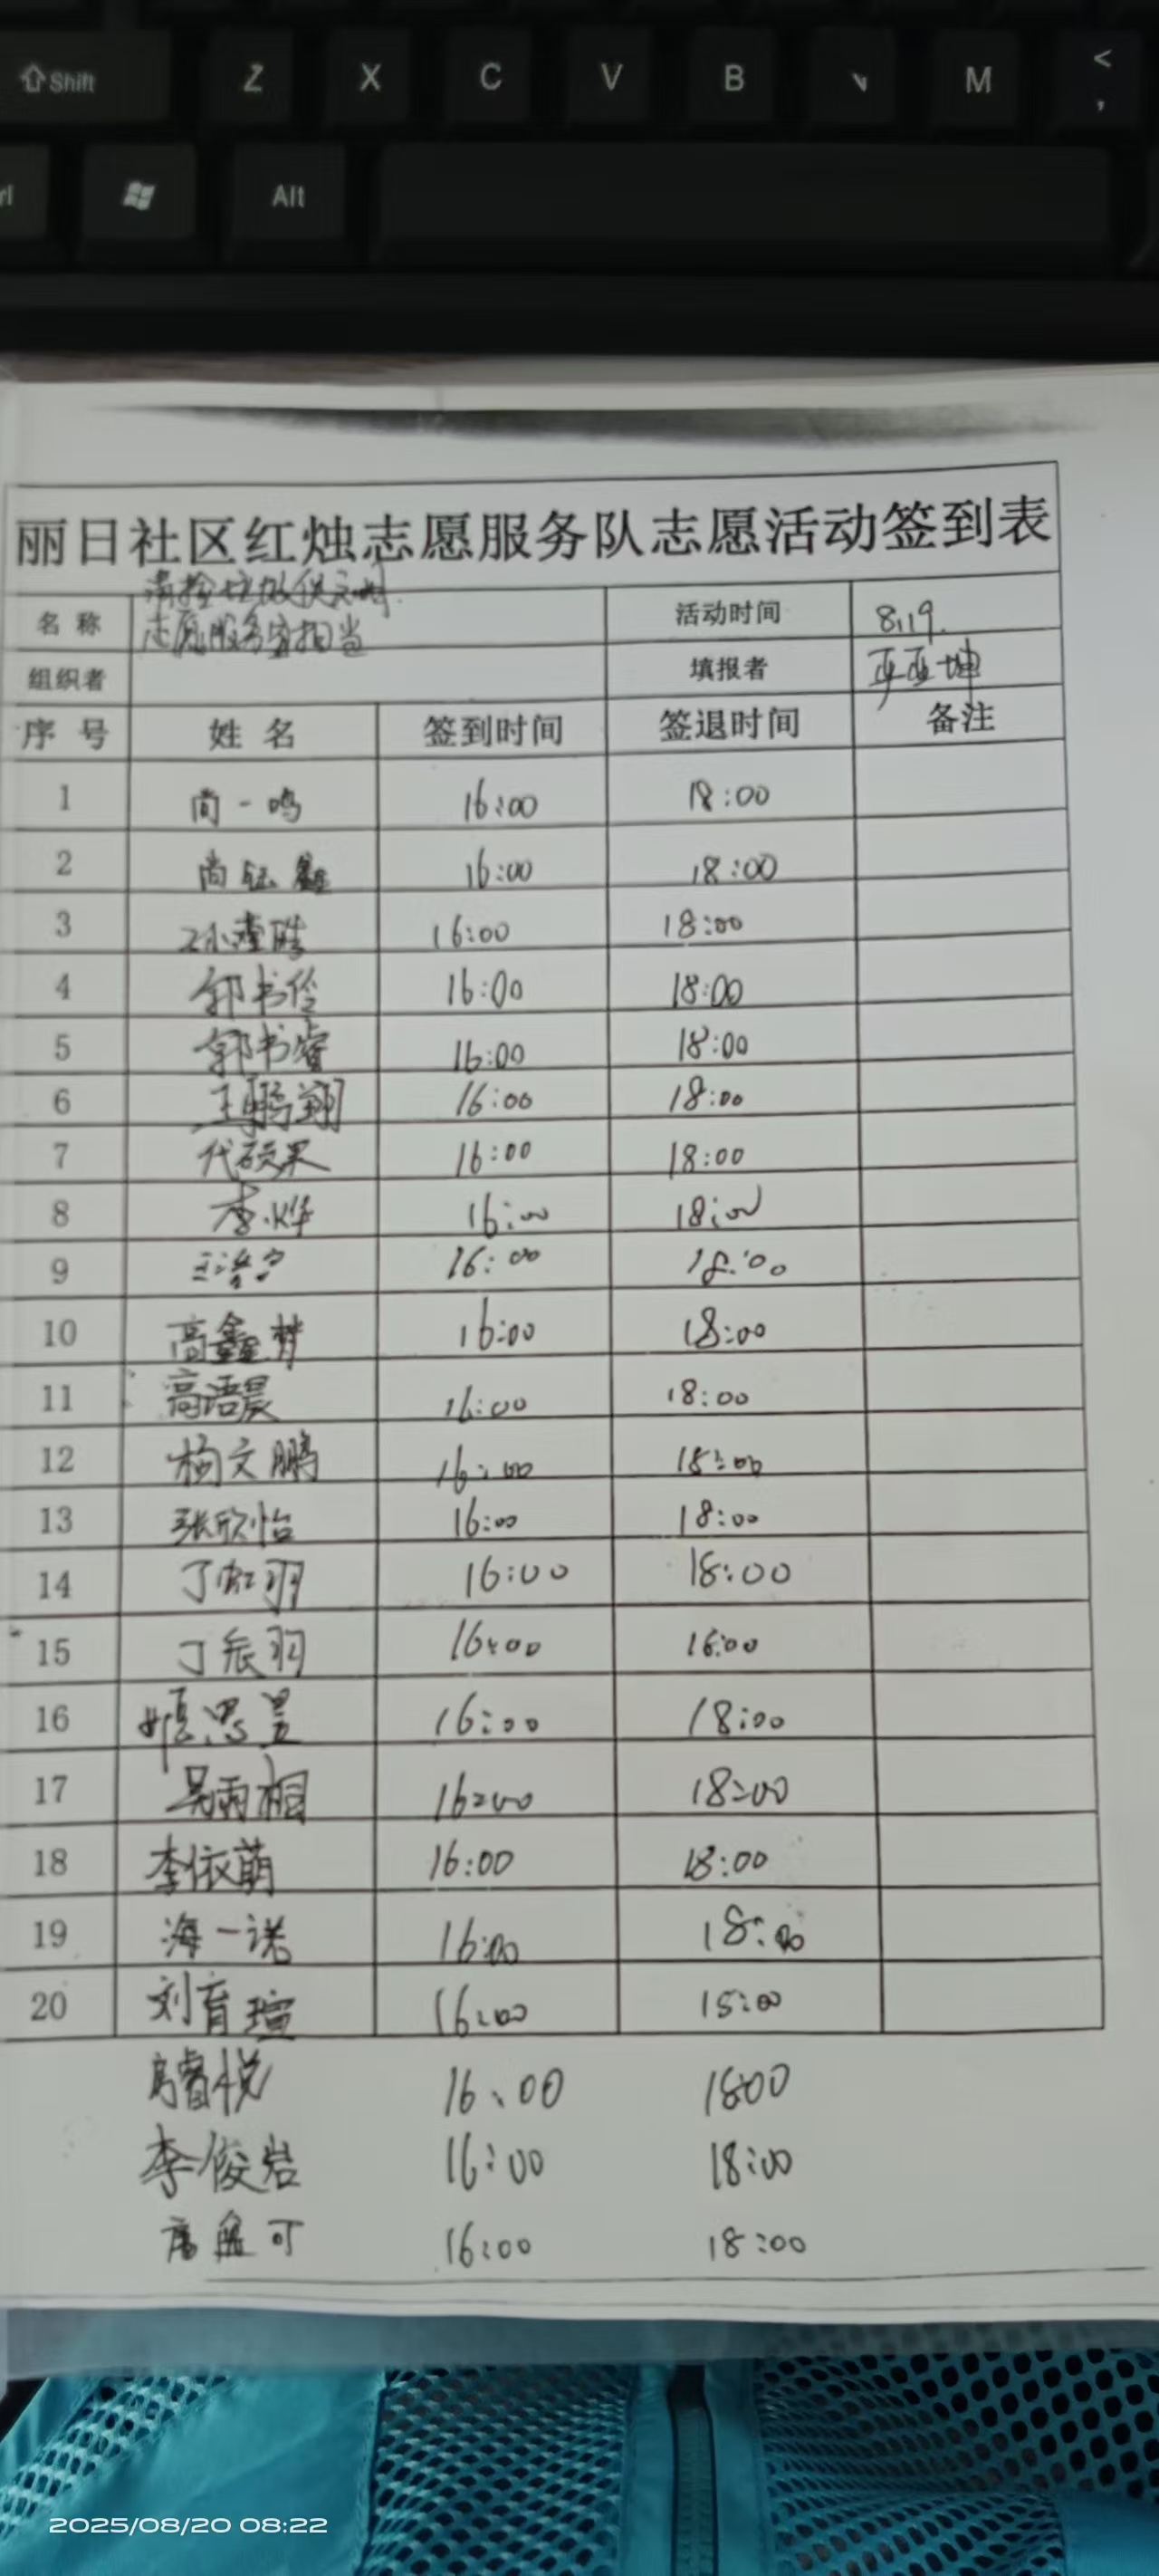 Shift Z X C V B M < ,
Alt
丽日社区红烛志愿服务队志愿活动签到表
名 称 清捡垃圾 志愿服务 担当 活动时间 8.19.
组织者 填报者 亚坤
序 号 姓 名 签到时间 签退时间 备注
1 尚一鸣 16:00 18:00
2 尚钰鑫 16:00 18:00
3 16:00 18:00
4 郭书伶 16:00 18:00
5 郭书睿 16:00 18:00
6 王鹏翔 16:00 18:00
7 代硕果 16:00 18:00
8 李烨 16:00 18:00
9 16:00 18:00
10 高鑫梦 16:00 18:00
11 高语晨 16:00 18:00
12 杨文鹏 16:00 18:00
13 张欣怡 16:00 18:00
14 丁虹羽 16:00 18:00
15 丁辰羽 16:00 18:00
16 思昱 16:00 18:00
17 吴雨桐 16:00 18:00
18 李依萌 16:00 18:00
19 海一诺 16:00 18:00
20 刘育瑄 16:00 18:00
房睿悦 16:00 18:00
李俊岩 16:00 18:00
可 16:00 18:00
2025/08/20 08:22